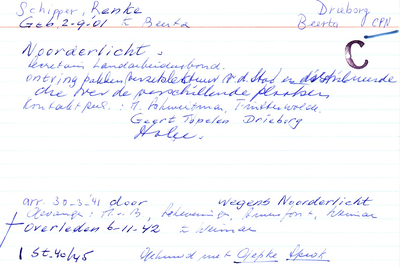 Schipper, Renke Drieborg
Geb. 2-9-'01 te Beerta Beerta CPN
C
Noorderlicht.
Secretaris Landarbeidersbond.
ontving pakken verzetslektuur v.d. Stad en distribueerde
die over de verschillende plaatsen
Kontaktpers.: Finsterwolde
Geert Topelen Drieborg
arr. 30-3-'41 door wegens Noorderlicht
Gevangen: Scheveningen, Amersfoort, Weimar
Overleden 6-11-42 te Weimar
1 St. 40/45 Gehuwd met